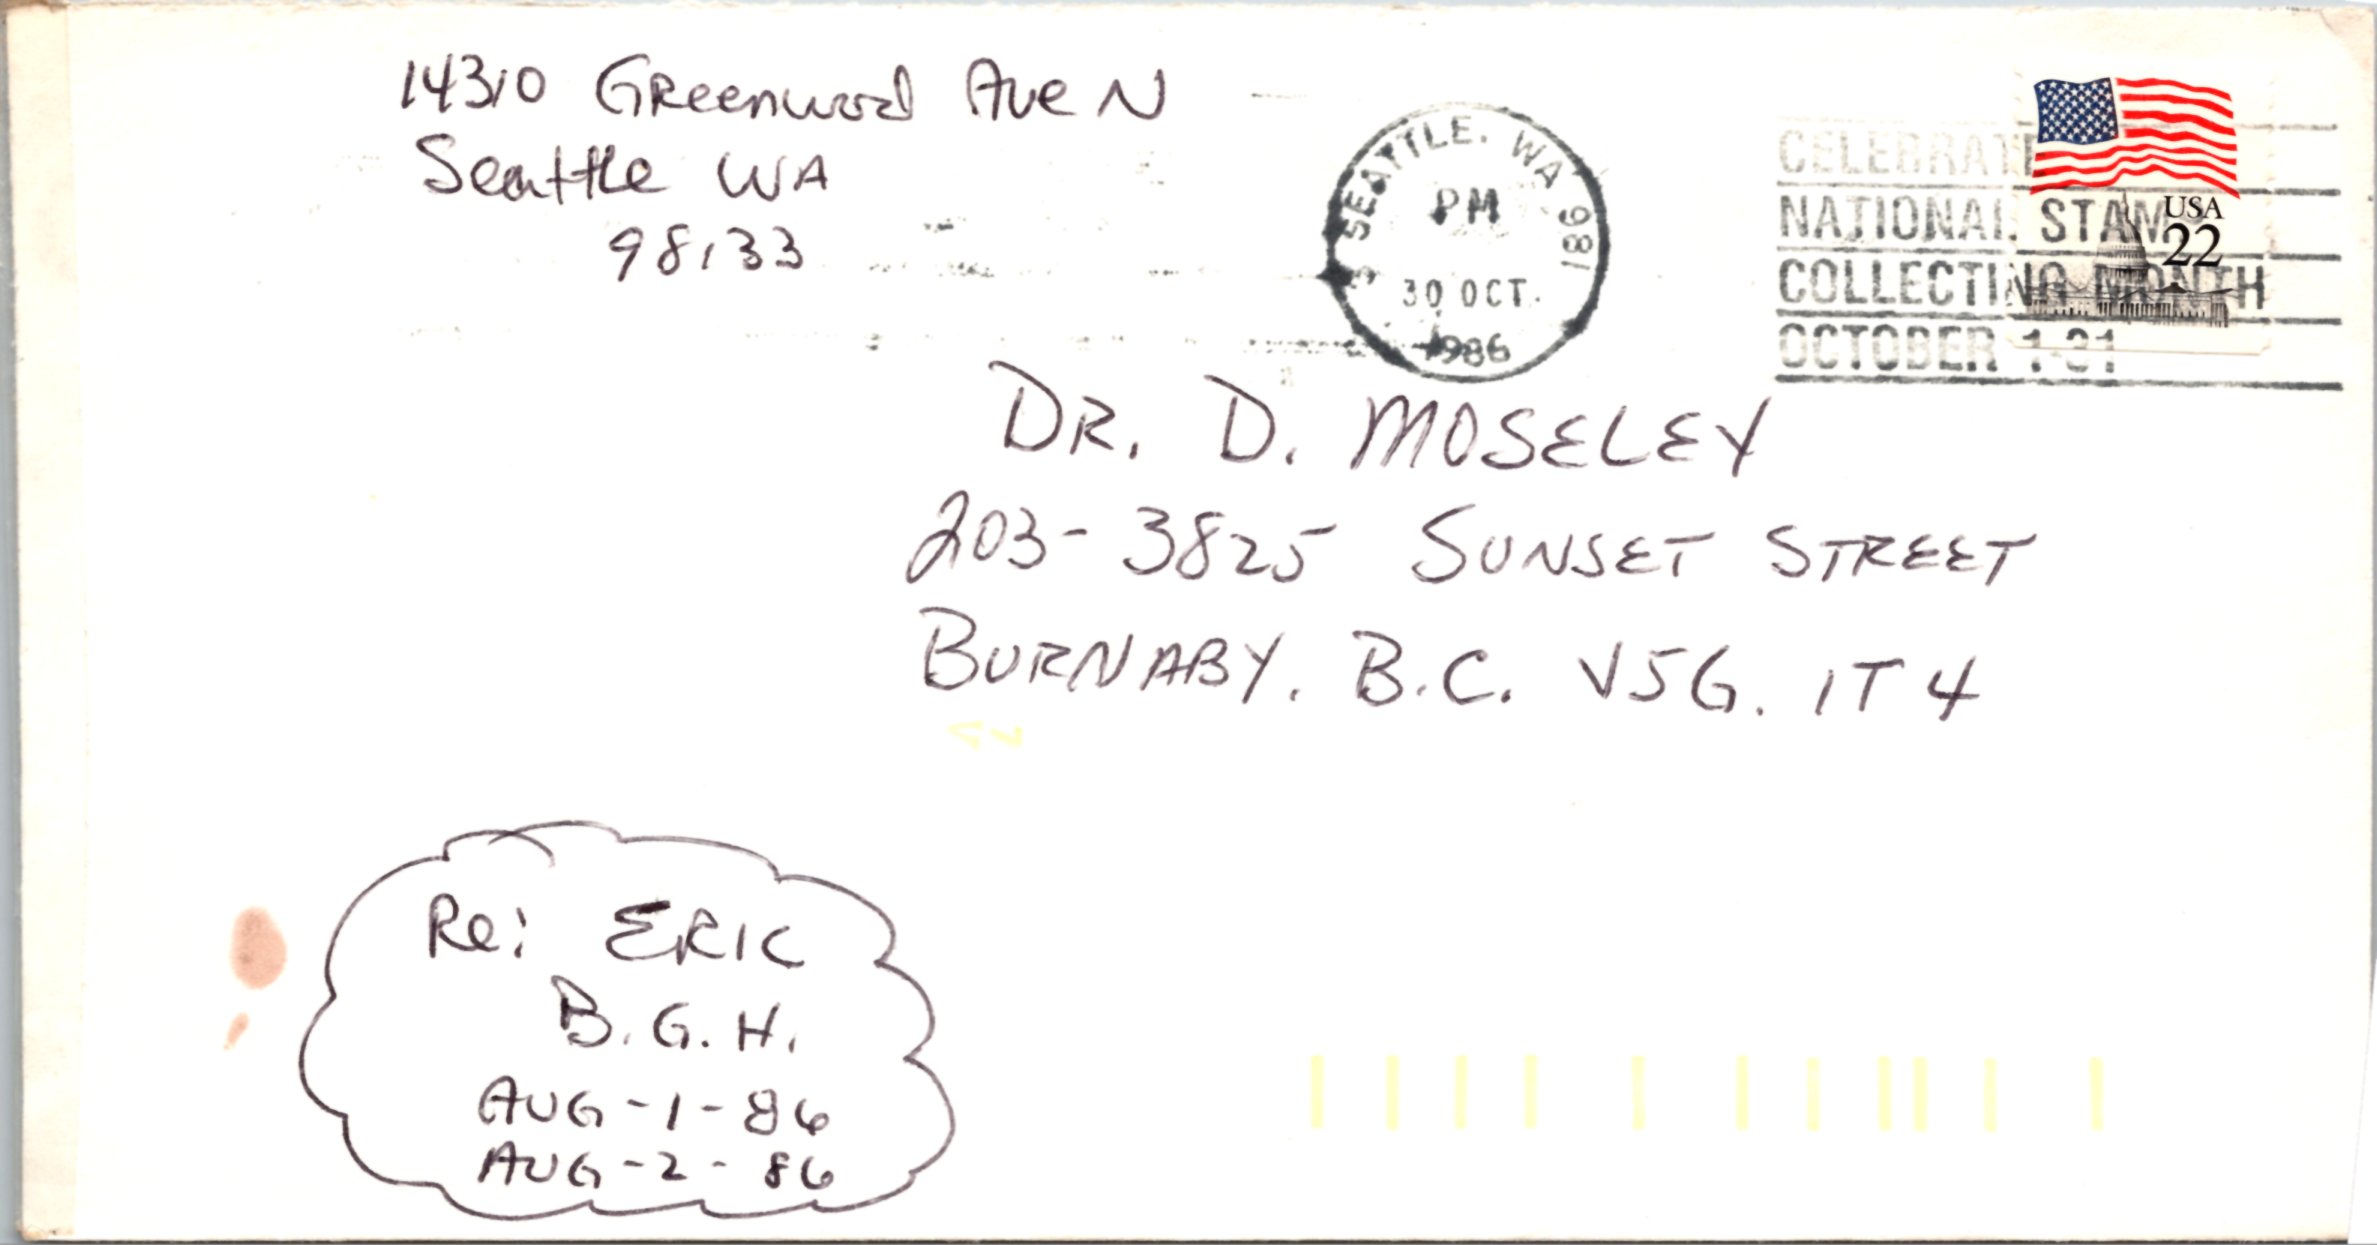 14310 Greenwood Ave N
Seattle WA
98133
SEATTLE. WA 981
PM
30 OCT.
1986
CELEBRATE
NATIONAL STAMP
COLLECTING MONTH
OCTOBER 1-31
USA
22
DR. D. MOSELEY
203-3825 SUNSET STREET
BURNABY. B.C. V5G. 1T4
Re: ERIC
B.G.H.
AUG-1-86
AUG-2-86